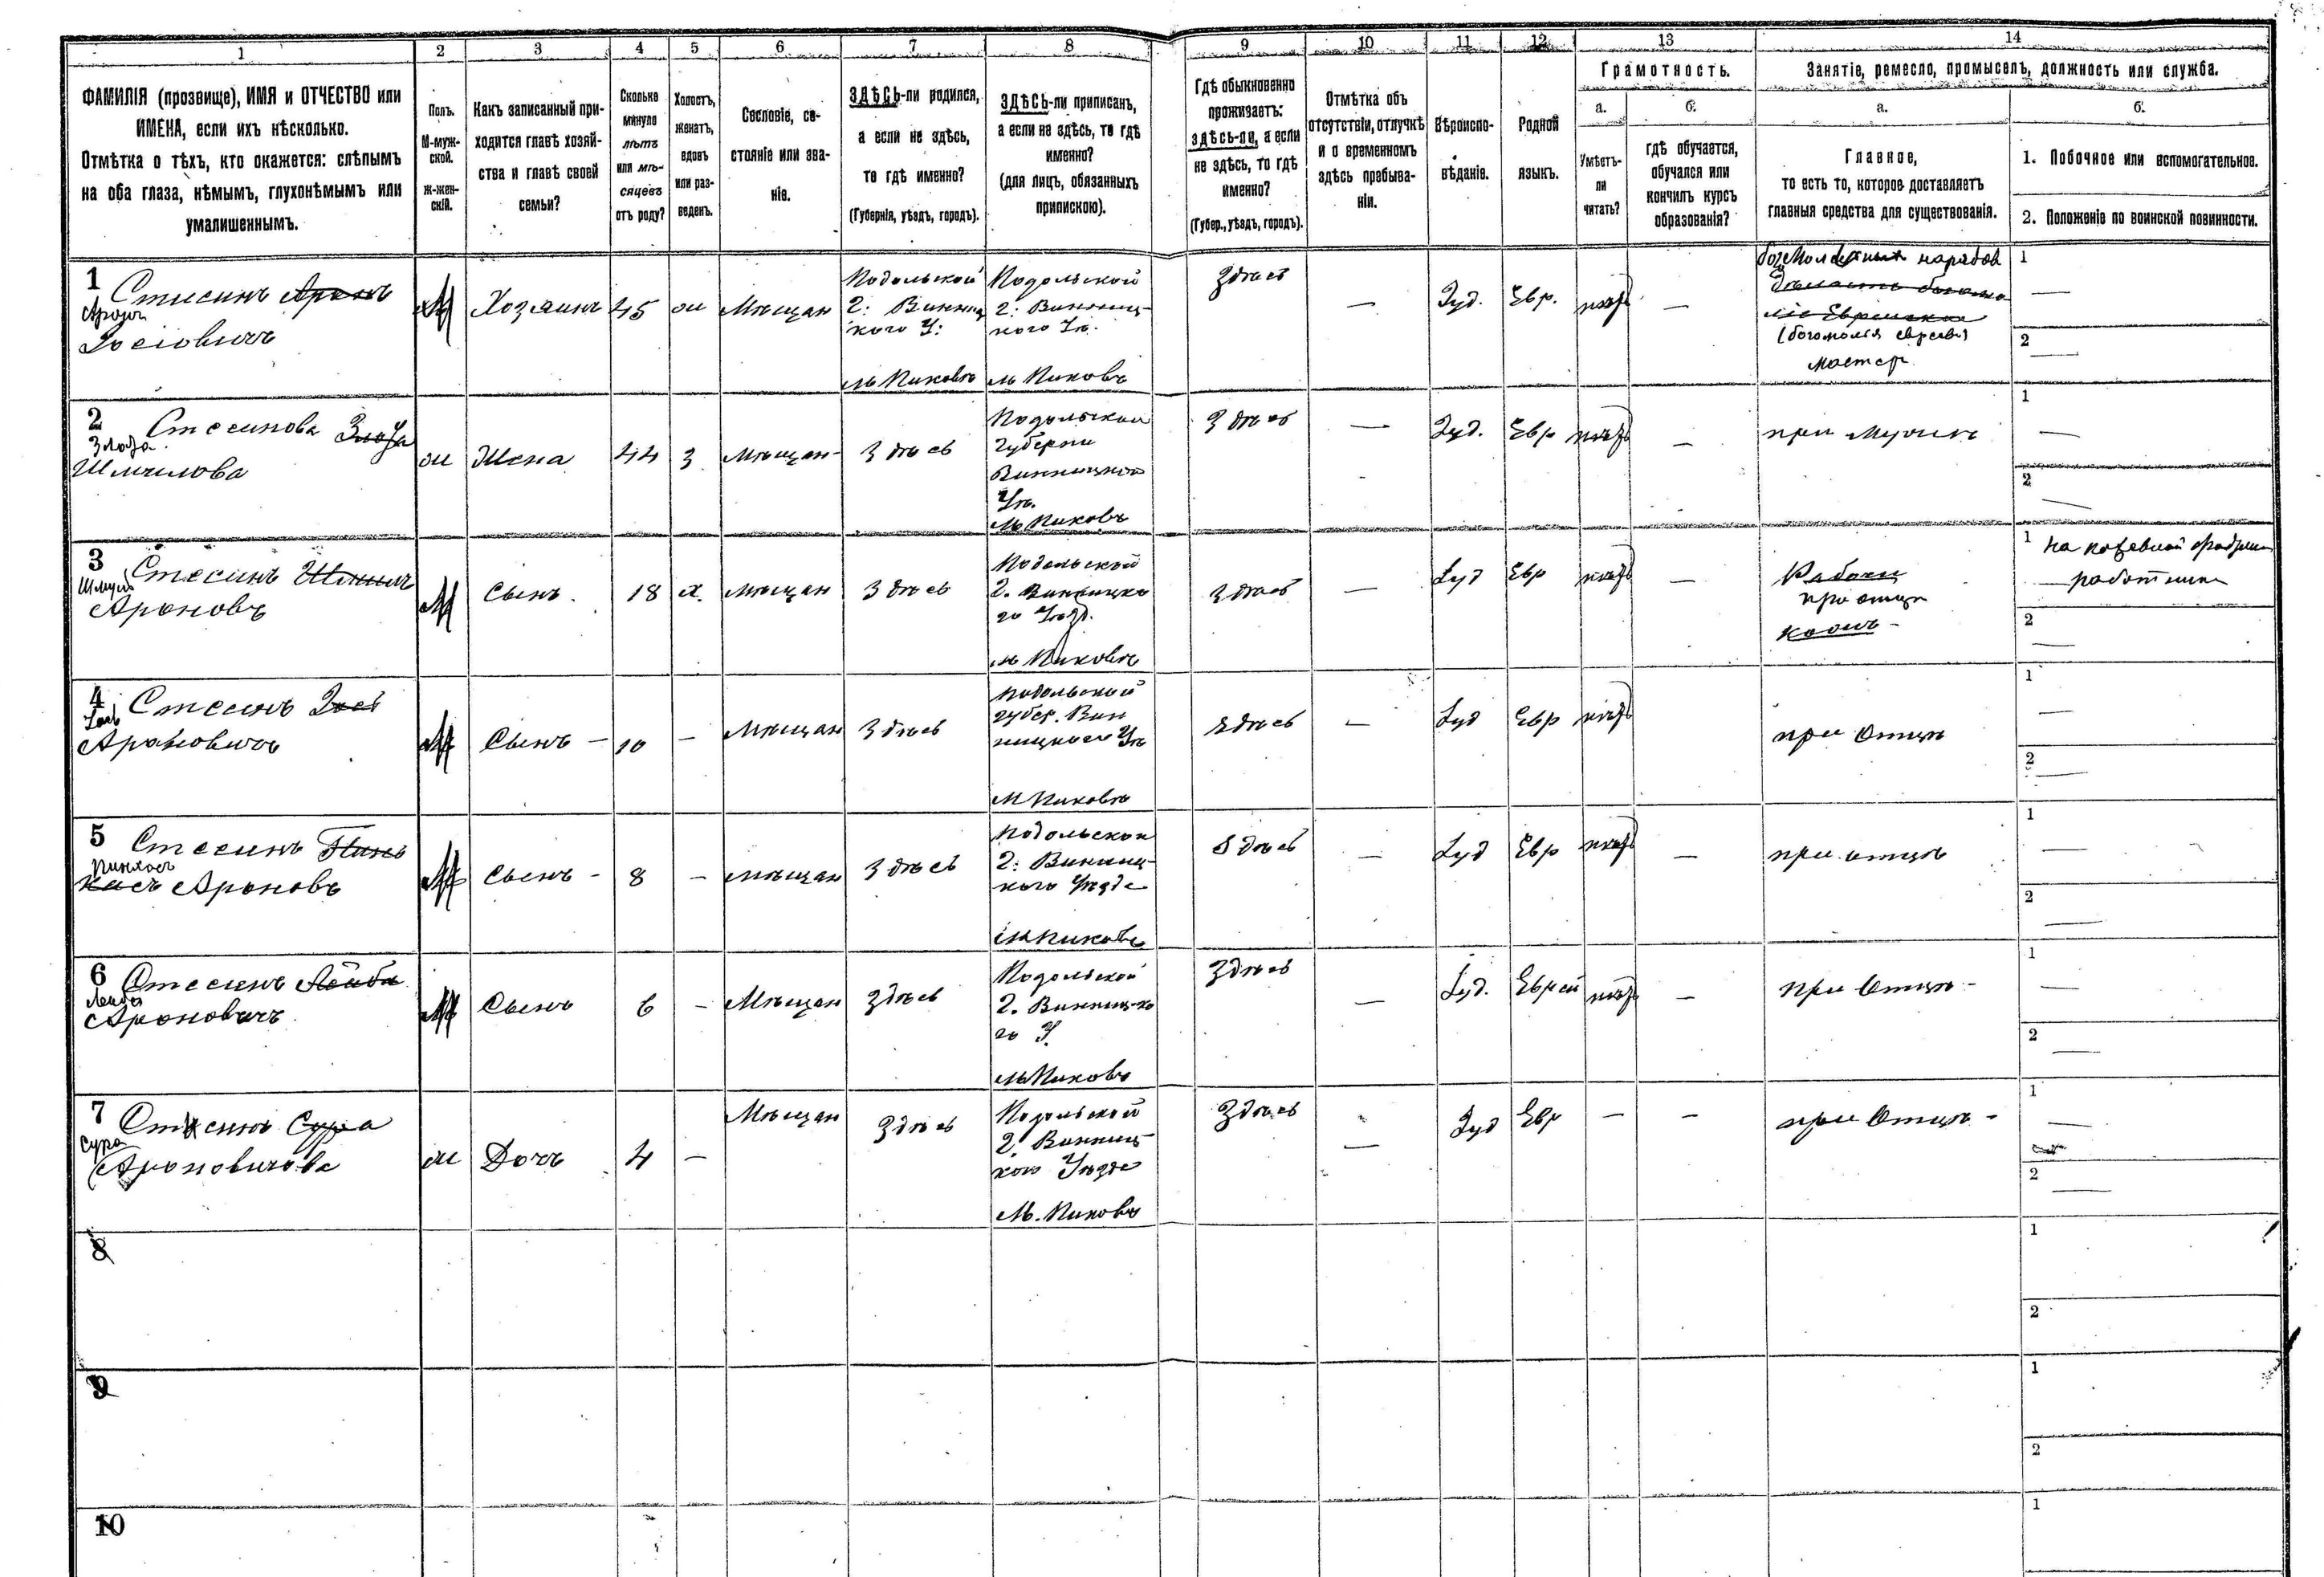 1 2 3 4 5 6 7 8 9 10 11 12 13 14
ФАМИЛІЯ (прозвище), ИМЯ и ОТЧЕСТВО или
ИМЕНА, если ихъ нѣсколько.
Отмѣтка о тѣхъ, кто окажется: слѣпымъ
на оба глаза, нѣмымъ, глухонѣмымъ или
умалишеннымъ.
Полъ.
М-муж-
ской.
Ж-жен-
скій.
Какъ записанный при-
ходится главѣ хозяй-
ства и главѣ своей
семьи?
Сколько
минуло
лѣтъ
или мѣ-
сяцевъ
отъ роду?
Холостъ,
женатъ,
вдовъ
или раз-
веденъ.
Сословіе, со-
стояніе или зва-
ніе.
ЗДѢСЬ-ли родился,
а если не здѣсь,
то гдѣ именно?
(Губернія, уѣздъ, городъ).
ЗДѢСЬ-ли приписанъ,
а если не здѣсь, то гдѣ
именно?
(для лицъ, обязанныхъ
припискою).
Гдѣ обыкновенно
проживаетъ:
здѣсь-ли, а если
не здѣсь, то гдѣ
именно?
(Губер., уѣздъ, городъ).
Отмѣтка объ
отсутствіи, отлучкѣ
и о временномъ
здѣсь пребыва-
ніи.
Вѣроиспо-
вѣданіе.
Родной
языкъ.
Грамотность.
а.
Умѣетъ-
ли
читать?
б.
гдѣ обучается,
обучался или
кончилъ курсъ
образованія?
Занятіе, ремесло, промыселъ, должность или служба.
а.
Главное,
то есть то, которое доставляетъ
главныя средства для существованія.
б.
1. Побочное или вспомогательное.
2. Положеніе по воинской повинности.
1 Стисинъ Аронъ
Аронъ
Іосіовичъ
М Хозяинъ 45 ж Мѣщан
Подольской
г: Винниц
кого У:
м Пиковъ
Подольской
г: Винниц-
кого Уѣ.
м Пиковъ
Здѣсь — Іуд. Евр. —
(богомолія евреевъ)
мастер
1 —
2 —
2 Стесинова Злота
Злота
Шмилова
ж Жена 44 З мѣщан- Здѣсь
Подольской
губерни
Винницкого
Уѣ.
м. Пиковъ
Здѣсь — Іуд. Евр — при Мужѣ
1 —
2 —
3 Стесинъ
Шмуль
Ароновъ
М Сынъ. 18 х. мѣщан Здѣсь
Подольской
г. Винницко
го Уѣзд.
м Пиковъ
Здѣсь — Іуд Евр —
при отцѣ
1 на
работник
2 —
4 Стесинъ Іось
Іось
Ароновичъ
М Сынъ - 10 - мѣщан Здѣсь
Подольской
губер. Вин
ницкого Уѣ
м Пиковъ
Здѣсь — Іуд Евр при Отцѣ
1 —
2 —
5 Стесинъ Пинь
Пинхасъ
касъ Ароновъ
М Сынъ - 8 - мѣщан Здѣсь
Подольской
г: Винниц-
кого Уѣзде
м Пиковъ
Здѣсь — Іуд Евр — при отцѣ
1 —
2 —
6 Стесинъ Лейба
Лейба
Ароновичъ
М Сынъ 6 - Мѣщан Здѣсь
Подольской
г. Винницко
го У.
м Пиковъ
Здѣсь — Іуд. Еврей — при Отцѣ -
1 —
2 —
7 Стесинъ Сура
Сура
Ароновичова
ж Дочь 4 - Мѣщан Здѣсь
Подольской
г. Винниц-
кого Уѣзде
М. Пиковъ
Здѣсь — Іуд Евр — — при Отцѣ -
1 —
2 —
8
1
2
9
1
2
10
1